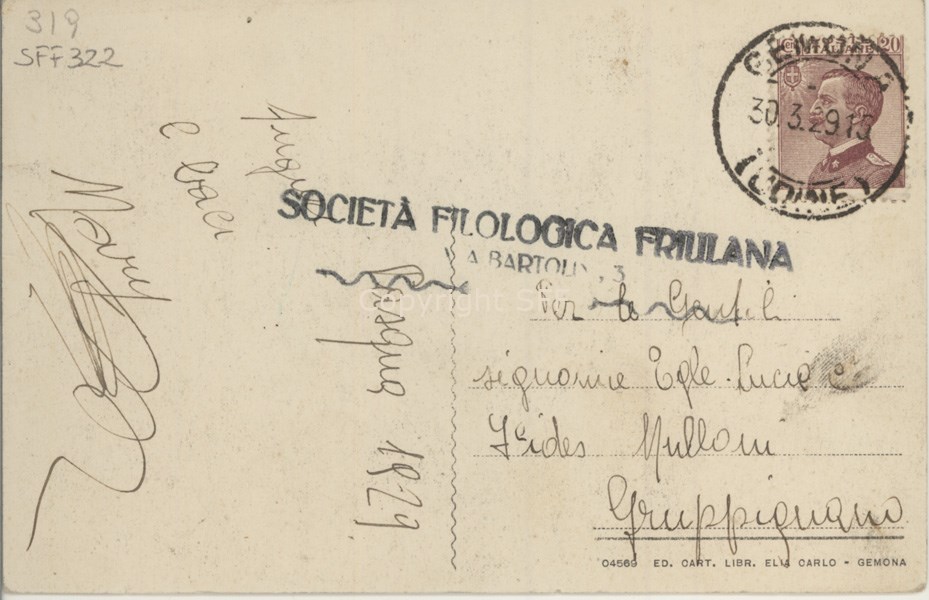 319
SFF322
Auguri
e baci
Mary
Pasqua 1929
SOCIETÀ FILOLOGICA FRIULANA
VIA BARTOLINI, 3
Copyright SFF
POSTE ITALIANE
Cent 20
GEMONA
30.3.29.13
(UDINE)
Per le Gentili
signorine Egle-Lucia e
Mulloni
Gruppignano
04569 ED. CART. LIBR. ELIA CARLO - GEMONA